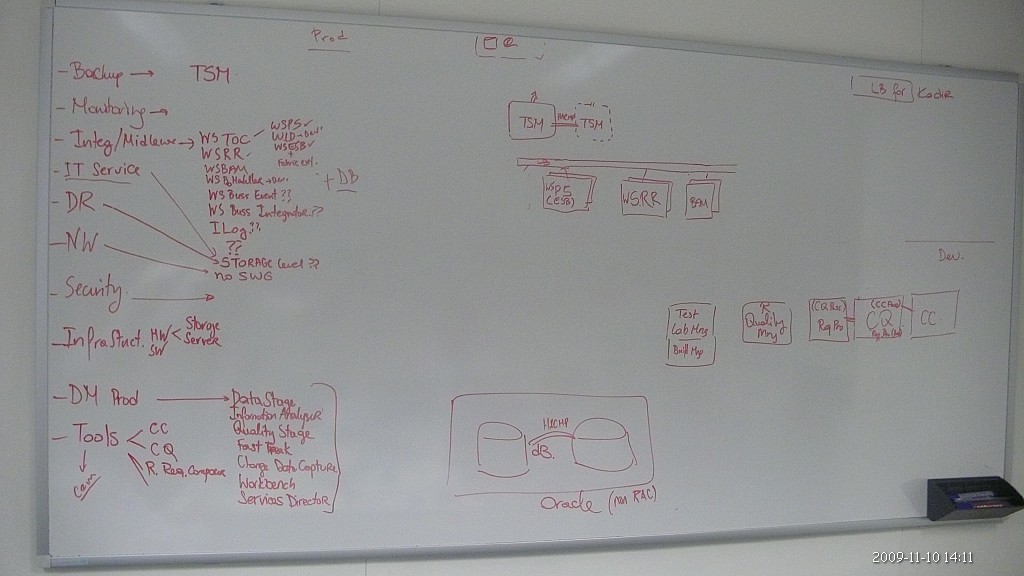 Prod
- Backup → TSM
- Monitoring →
- Integ/Midlewr → WS TOC
WSPS ✓
WID → Dev.
WSESB ✓
+
WSRR ✓
WSBAM
+ DB
WS Buss Event ??
WS Buss Integrator ??
ILog ??
??
- IT Service
- DR
- NW
STORAGE level ??
no SWG
- Security →
- Infrastruct. HW
SW
Storage
Server
- DM Prod → Data Stage
Infomation Analyser
Quality Stage
Fast Track
Change Data Capture
Workbench
Services Director
- Tools
CC
CQ
R. Req. Composer
LB for Kadir
TSM HACMP TSM
WSPS
(ESB)
WSRR
BAM
Dev.
Test
Lab Mng
Quality
Mng
Req Pro
CQ
CC
HACMP
dB.
Oracle (non RAC)
2009-11-10 14:11